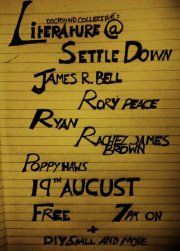 DOCFOUND COLLECTIVE:
LITERATURE @
SETTLE DOWN
JAMES R. BELL
RORY PEACE
RYAN
RACHEL JAMES
BROWN
POPPY HAWS
19TH AUGUST
FREE 7PM ON
+
DIY, SMALL AND MORE